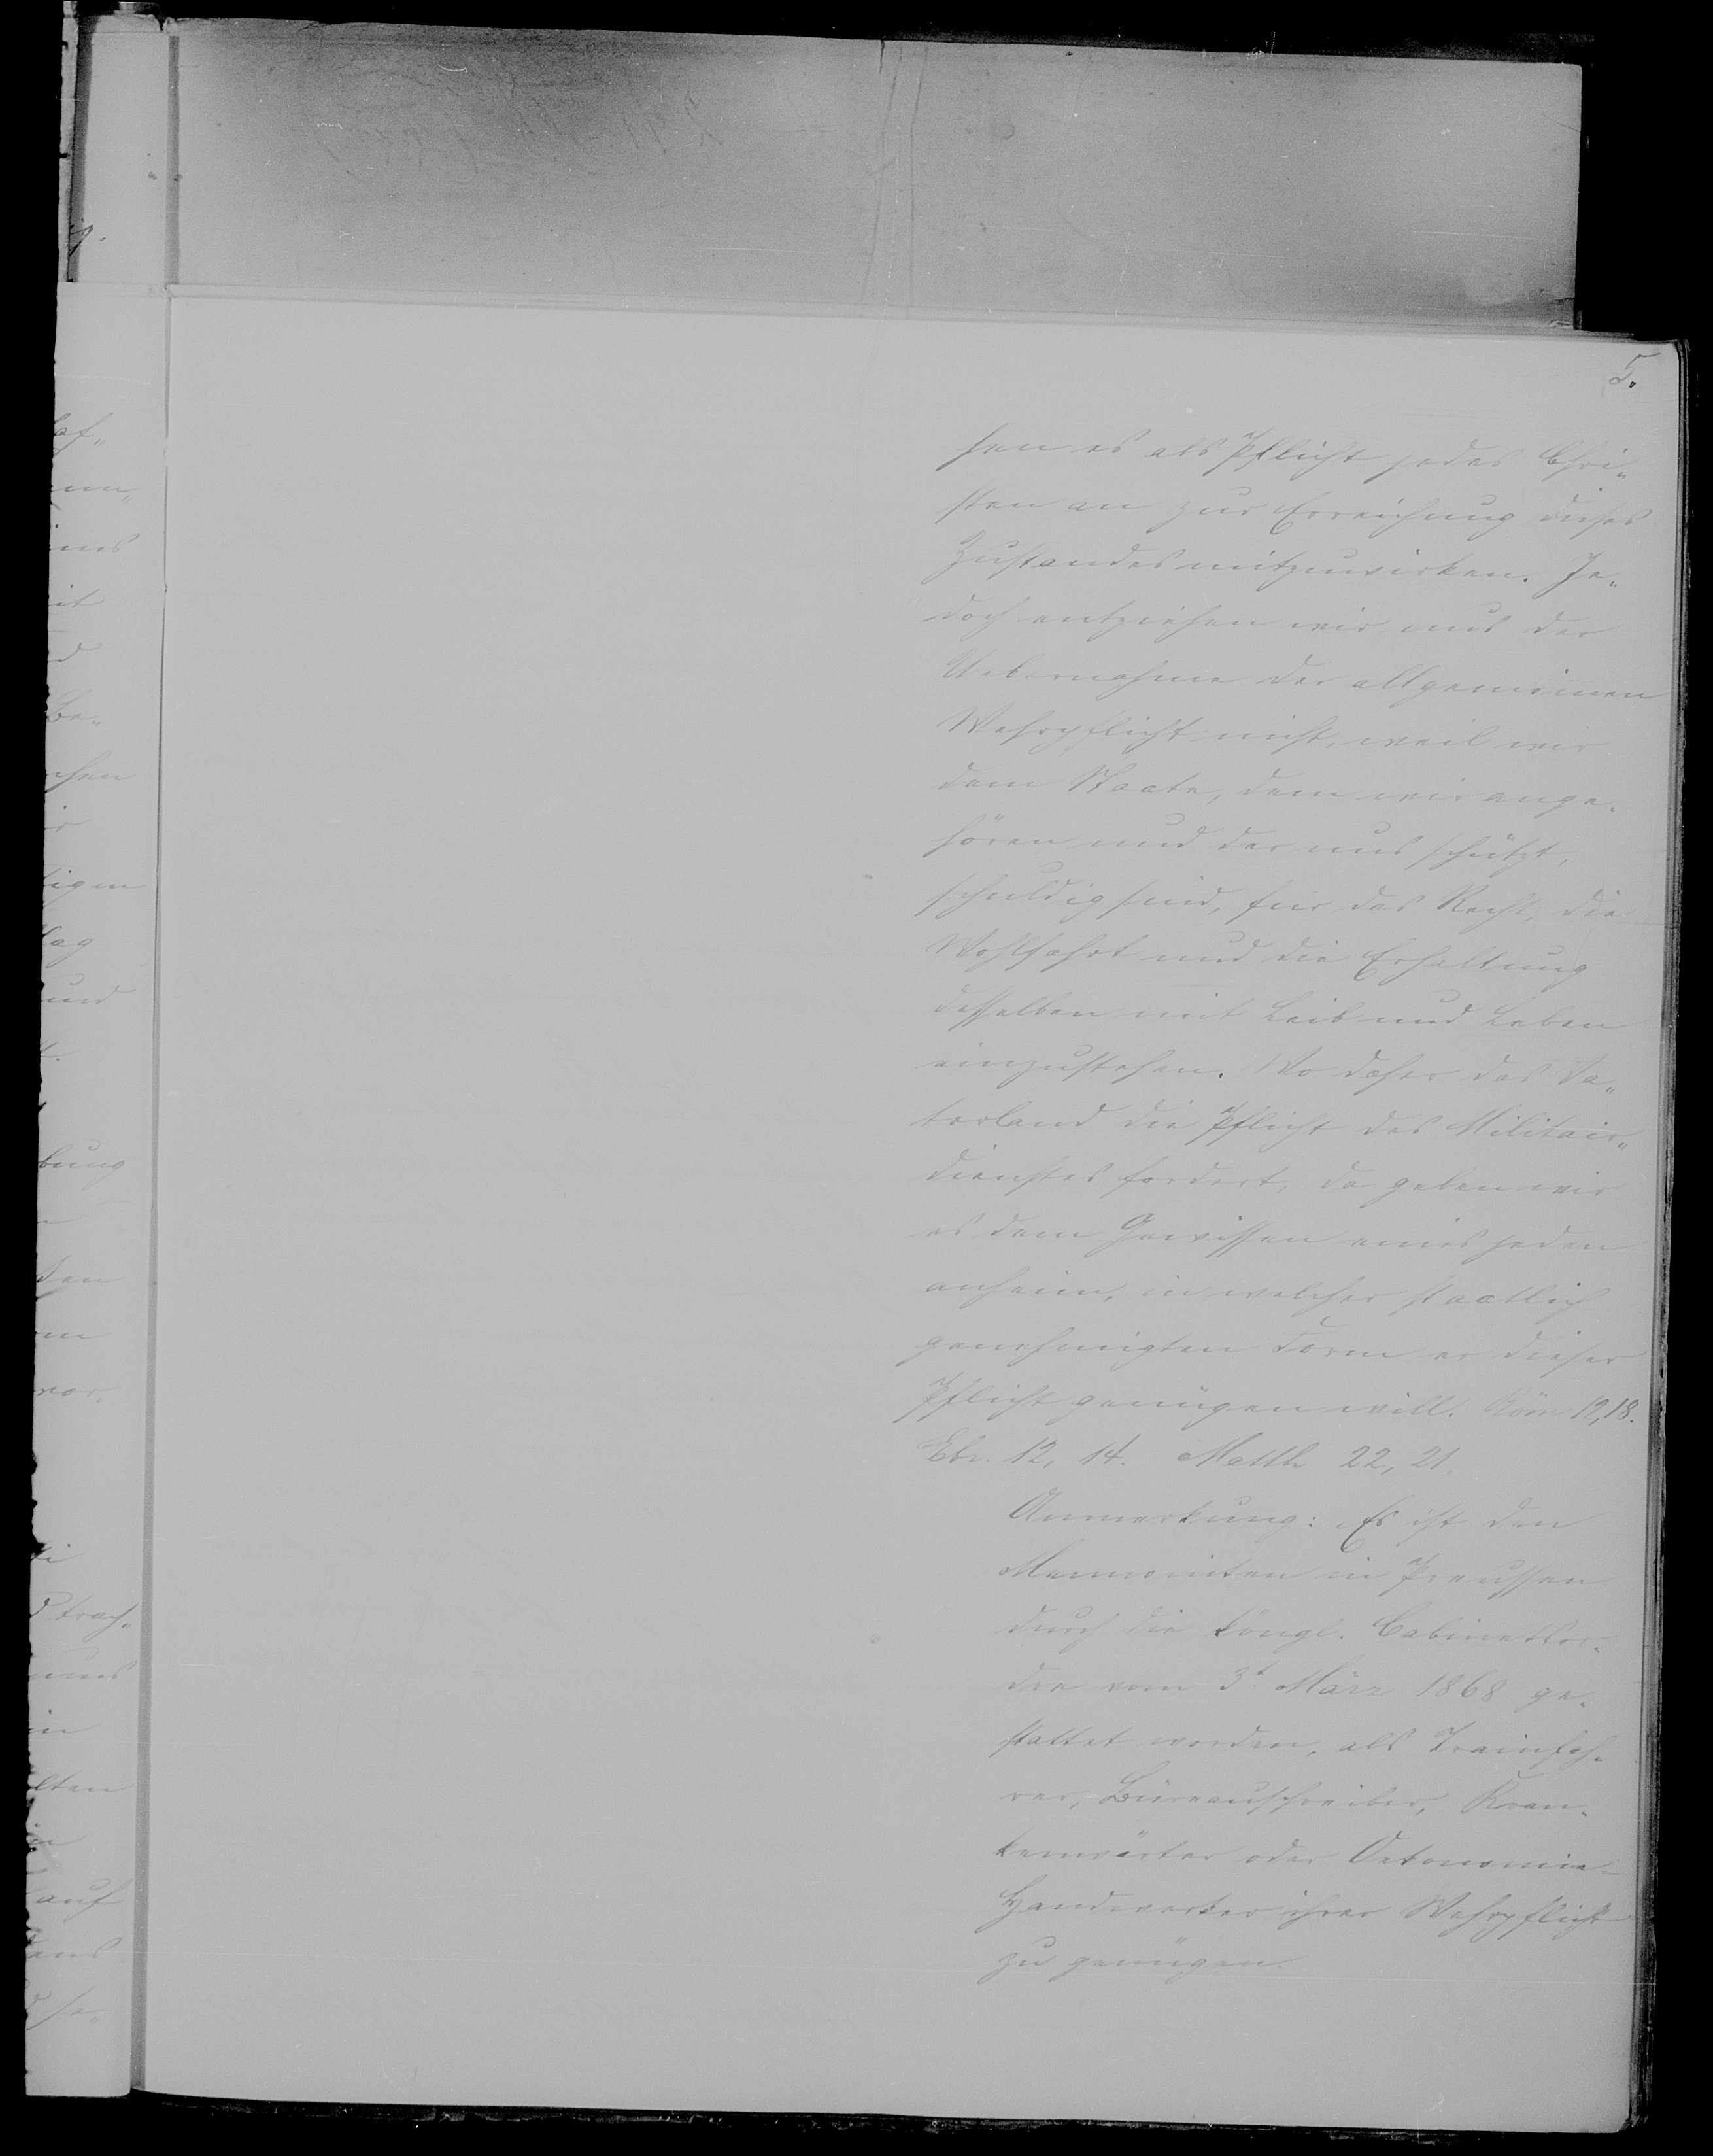 5.
hen es als Pflicht jedes Chri„
sten an zur Erreichung dieses
Zustandes mitzuwirken. Je„
doch entziehen wir uns der
Uebernahme der allgemeinen
Wehrpflicht nicht, weil wir
dem Staate, dem wir ange„
hören und der uns schützt,
schuldig sind, für das Recht, die
Wohlfahrt und die Erhaltung
desselben mit Leib und Leben
einzustehen. Wo daher das Va„
terland die Pflicht des Militair„
dienstes fordert, da geben wir
es dem Gewissen eines jeden
anheim, in welcher staatlich
genehmigten Form er dieser
Pflicht genügen will. Röm 12, 18.
Ebr. 12, 14. Matth 22, 21.
Anmerkung: Es ist den
Mennoniten in Preussen
durch die köngl. Cabinetsor„
dre vom 3t März 1868 ge„
stattet worden, als Trainfah„
rer, Büreauschreiber, Kran„
kenwärter oder Oekonomie-
Handwerker ihrer Wehrpflicht
zu genügen.